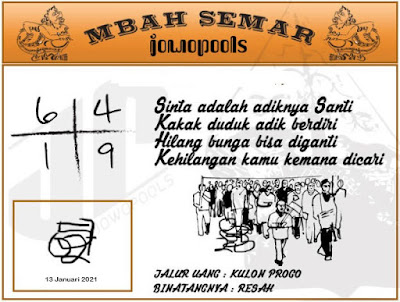 MBAH SEMAR
jowopools
6 4
1 9
Sinta adalah adiknya Santi
Kakak duduk adik berdiri
Hilang bunga bisa diganti
Kehilangan kamu kemana dicari
13 Januari 2021
JALUR UANG : KULON PROGO
BINATANGNYA : RESAH
JOWOPOOLS